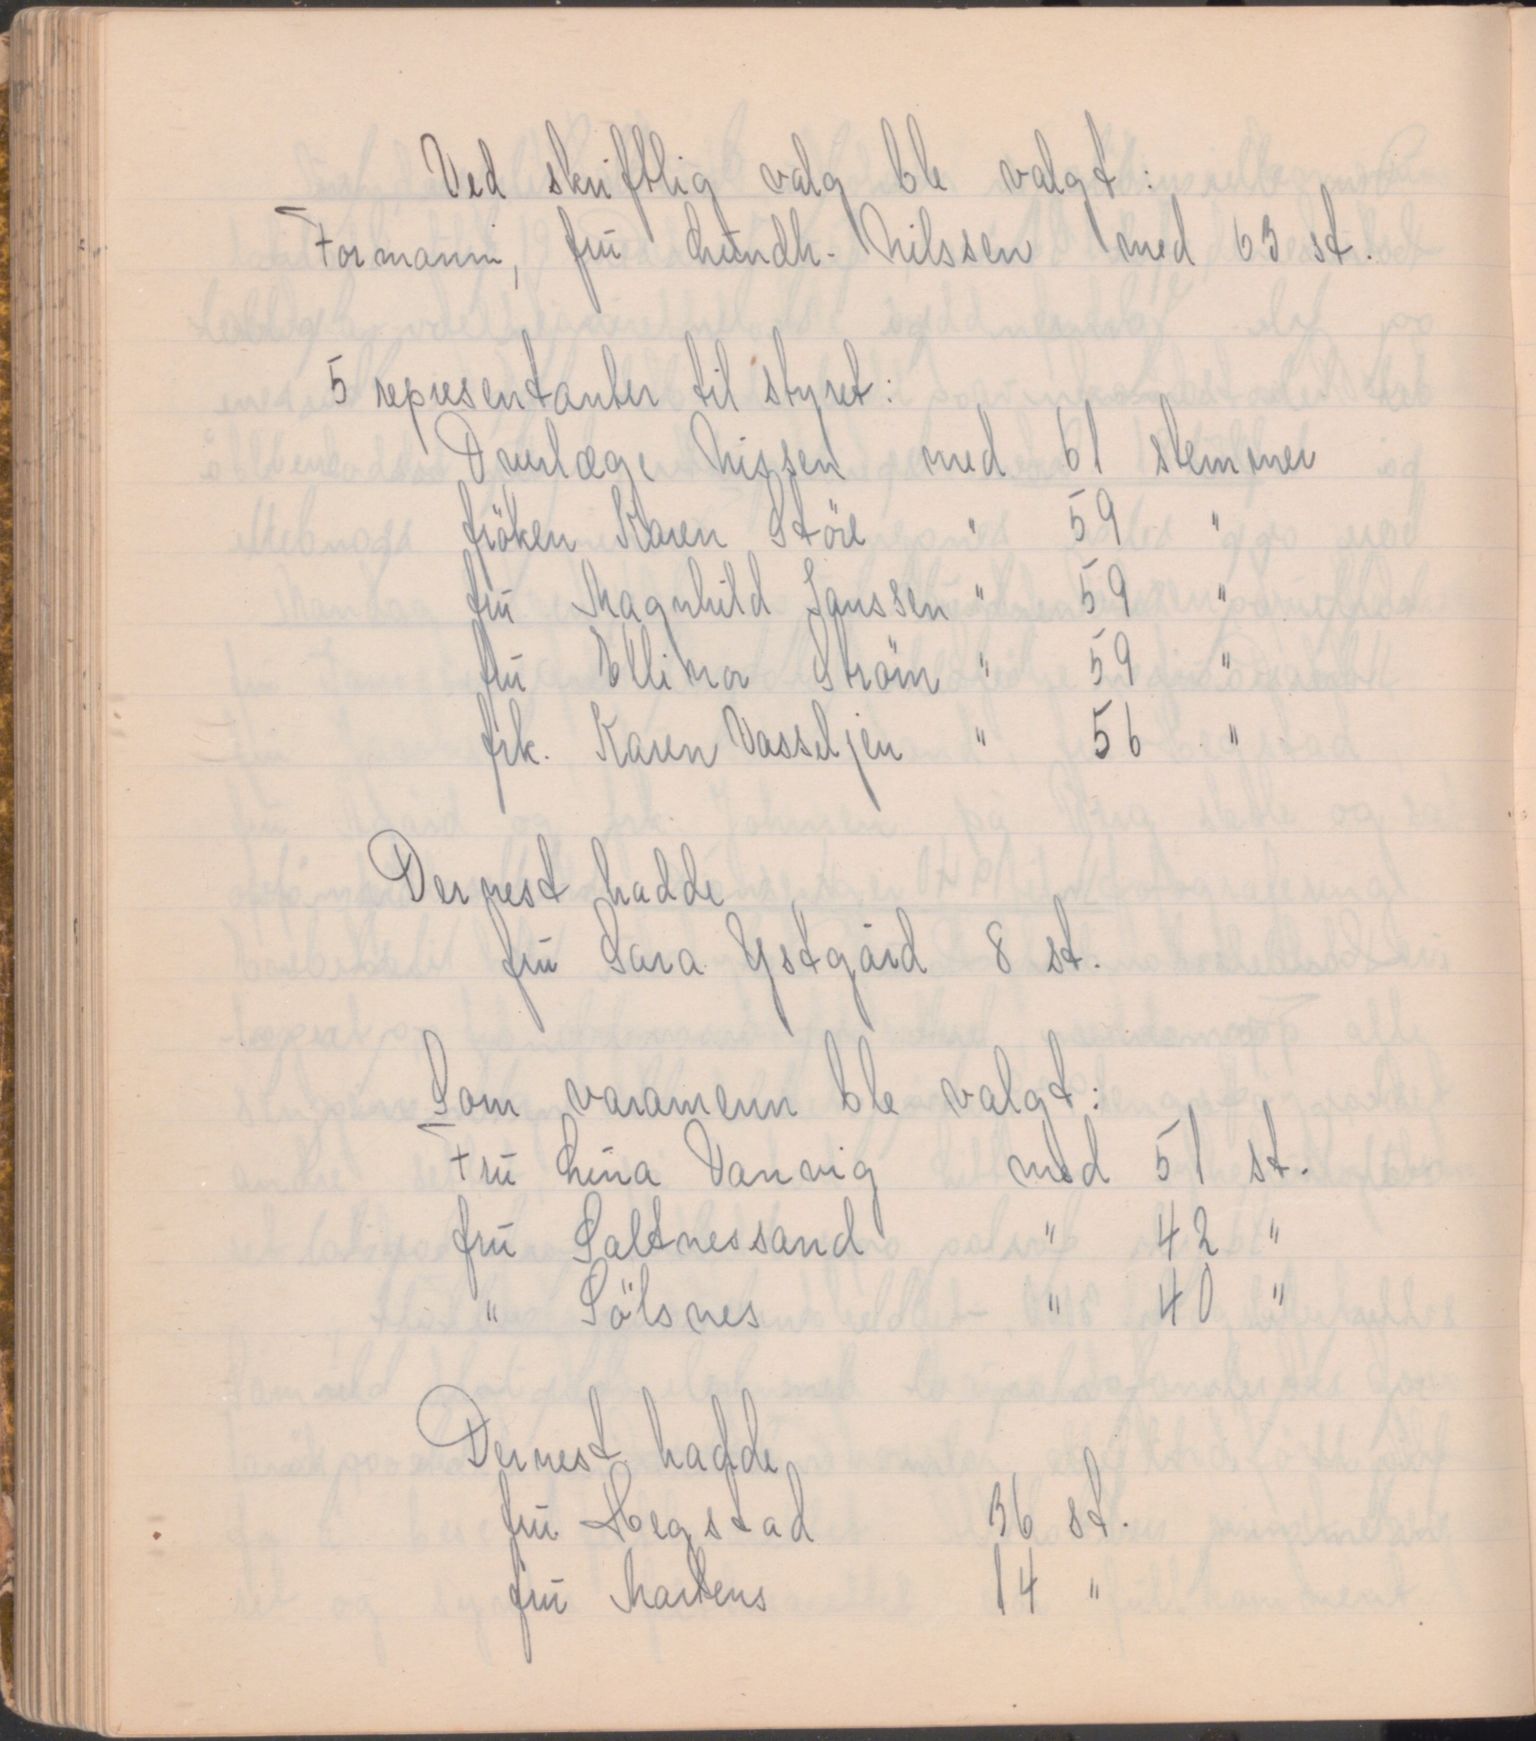 Ved skriftlig valg ble valgt:
Formann, frū Lūndh-Nilssen med 63 st.
5 representanter til styret:
Overlæge Nissen med 61 stemmer
fröken Karen Störe " 59 "
frū Magnhild Janssen " 59 "
frū Ellinor Ström " 59 "
frk. Karen Vasseljen " 56 "
Dernest hadde
frū Sara Ystgård 8 st.
Som varamenn ble valgt:
Frū Lina Vanvig med 51 st.
frū Saltnessand " 42 "
" Sölsnes " 40 "
Dernest hadde
frū Hegstad 36 st.
frū Martens 14 "